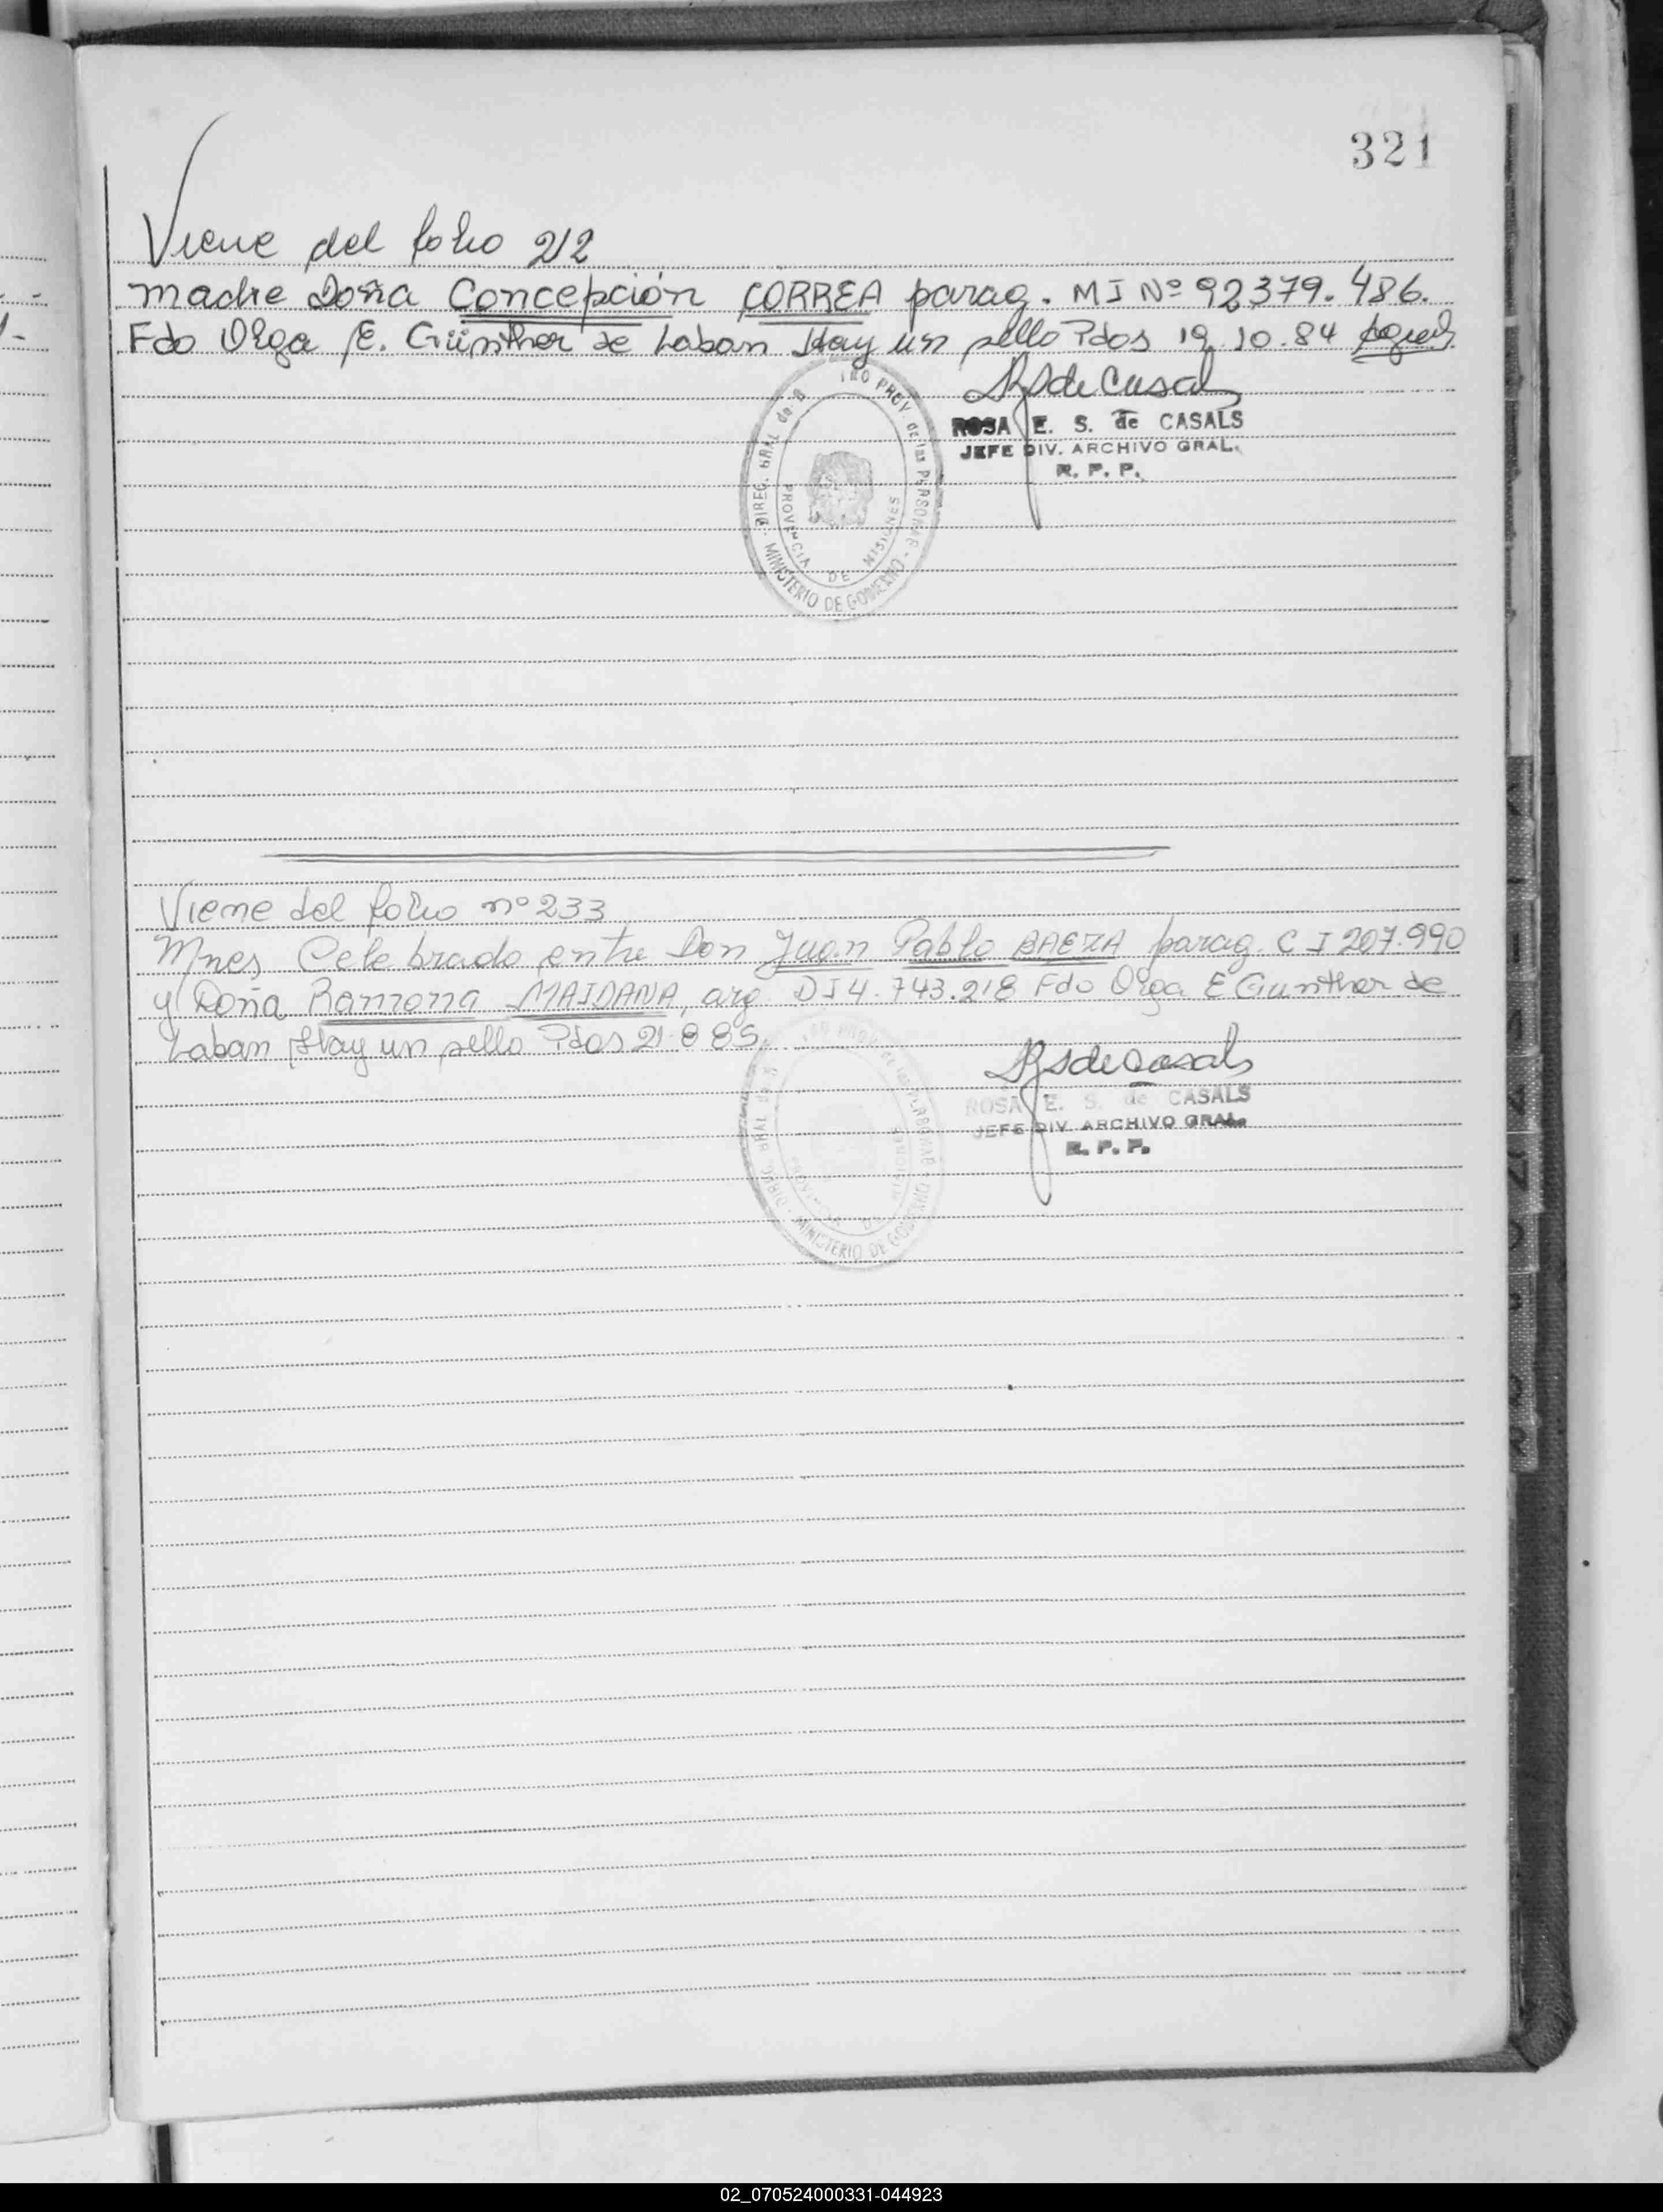 321
Viene del folio 212
madre Doña Concepción CORREA parag. MI Nº 92.379.486.
Fdo Olga E. Günther de Laban Hay un sello Pdos 19.10.84
RSdeCasals
ROSA E. S. de CASALS
JEFE DIV. ARCHIVO GRAL.
R. P. P.
DIREC. GRAL de
PROV. de las PERSONAS
MINISTERIO DE GOBIERNO
PROVINCIA DE MISIONES
Viene del folio nº 233
Mnes, Celebrado entre Don Juan Pablo BAEZA parag. C I 207.990
y Doña Ramona MAIDANA, arg. DI 4.743.218 Fdo Olga E Gunther de
Laban Hay un sello Pdos 21.8 85.
RSdeCasals
ROSA E. S. de CASALS
JEFE DIV. ARCHIVO GRAL.
R. P. P.
MINISTERIO DE GOBIERNO
02_070524000331-044923